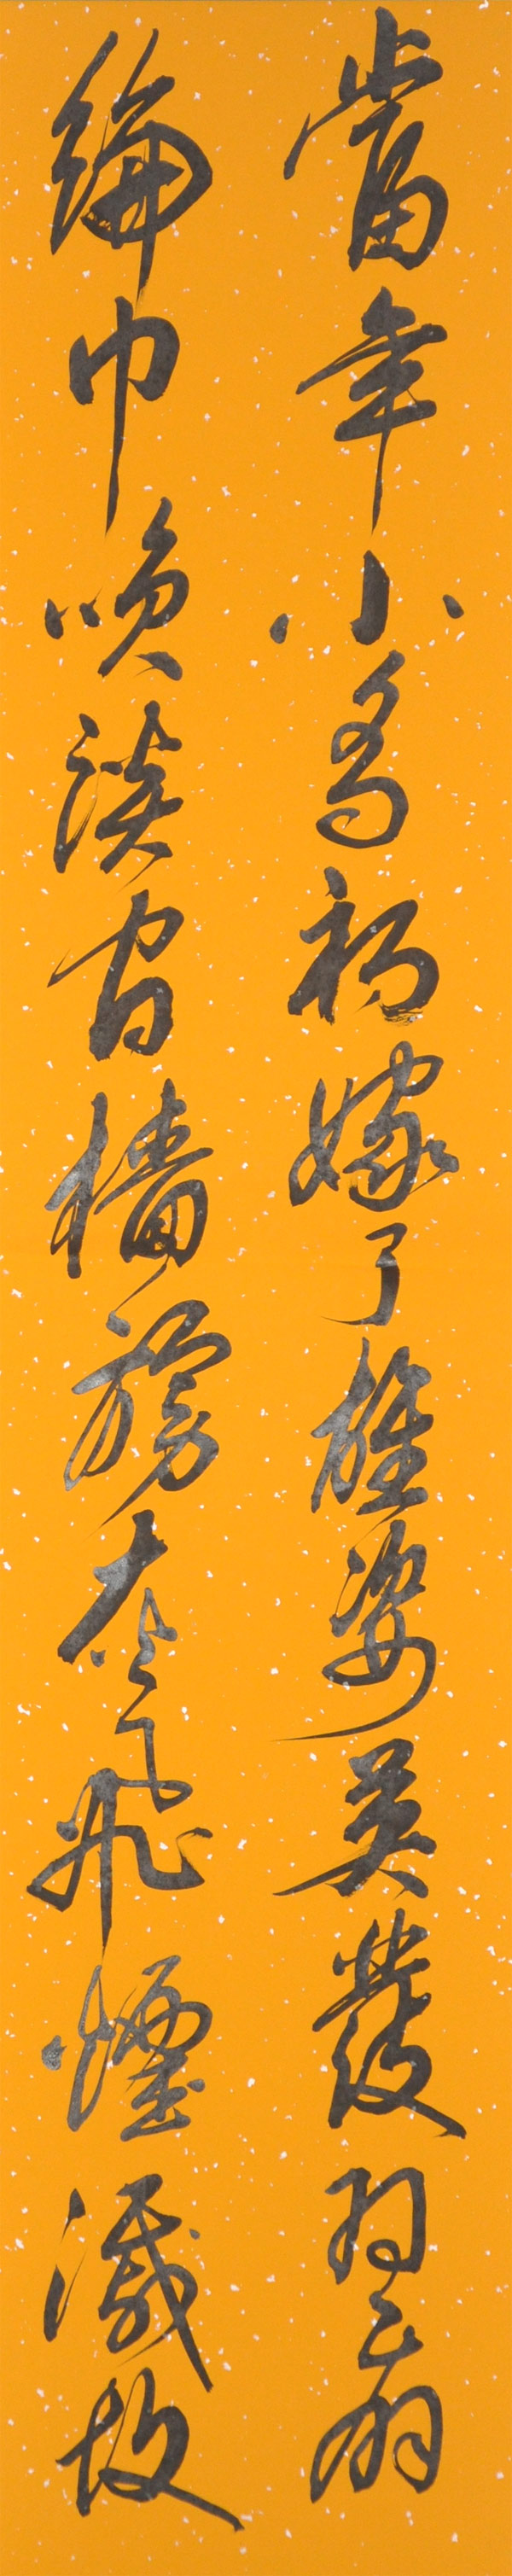 當年小喬初嫁了雄姿英發羽扇
綸巾咲談間檣艣灰飛煙滅故